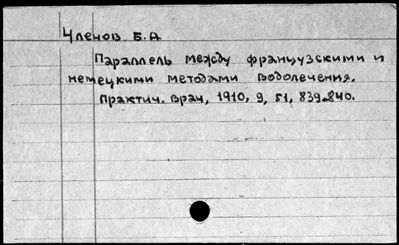 Членов Б.А
Параллель между французскими и
немецкими методами водолечения.
Практич. врач, 1910, 9, 51, 839-840.